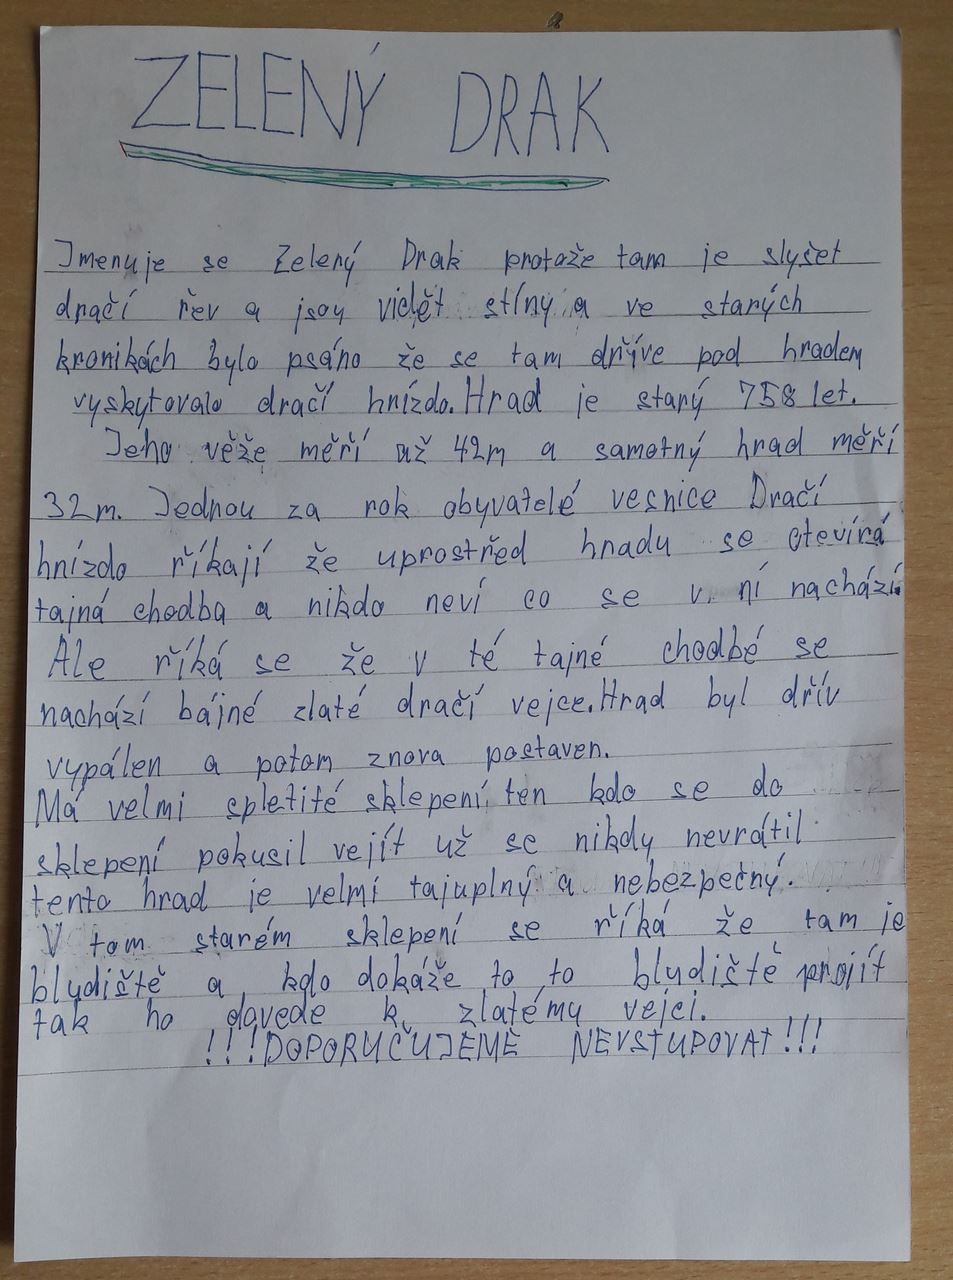 ZELENÝ DRAK
Jmenuje se Zelený Drak protože tam je slyšet
dračí řev a jsou vidět stíny a ve starých
kronikách bylo psáno že se tam dříve pod hradem
vyskytovalo dračí hnízdo. Hrad je starý 758 let.
Jeho věže měří až 42m a samotný hrad měří
32m. Jednou za rok obyvatelé vesnice Dračí
hnízdo říkají že uprostřed hradu se otevírá
tajná chodba a nikdo neví co se v ní nachází.
Ale říká se že v té tajné chodbé se
nachází bájné zlaté dračí vejce. Hrad byl dřív
vypálen a potom znova postaven.
Má velmi spletité sklepení, ten kdo se do
sklepení pokusil vejít už se nikdy nevrátil.
tento hrad je velmi tajuplný a nebezpečný.
V tom starém sklepení se říká že tam je
bludiště a kdo dokáže to to bludiště projít
tak ho dovede k zlatému vejci.
!!!DOPORUČUJEME NEVSTUPOVAT!!!